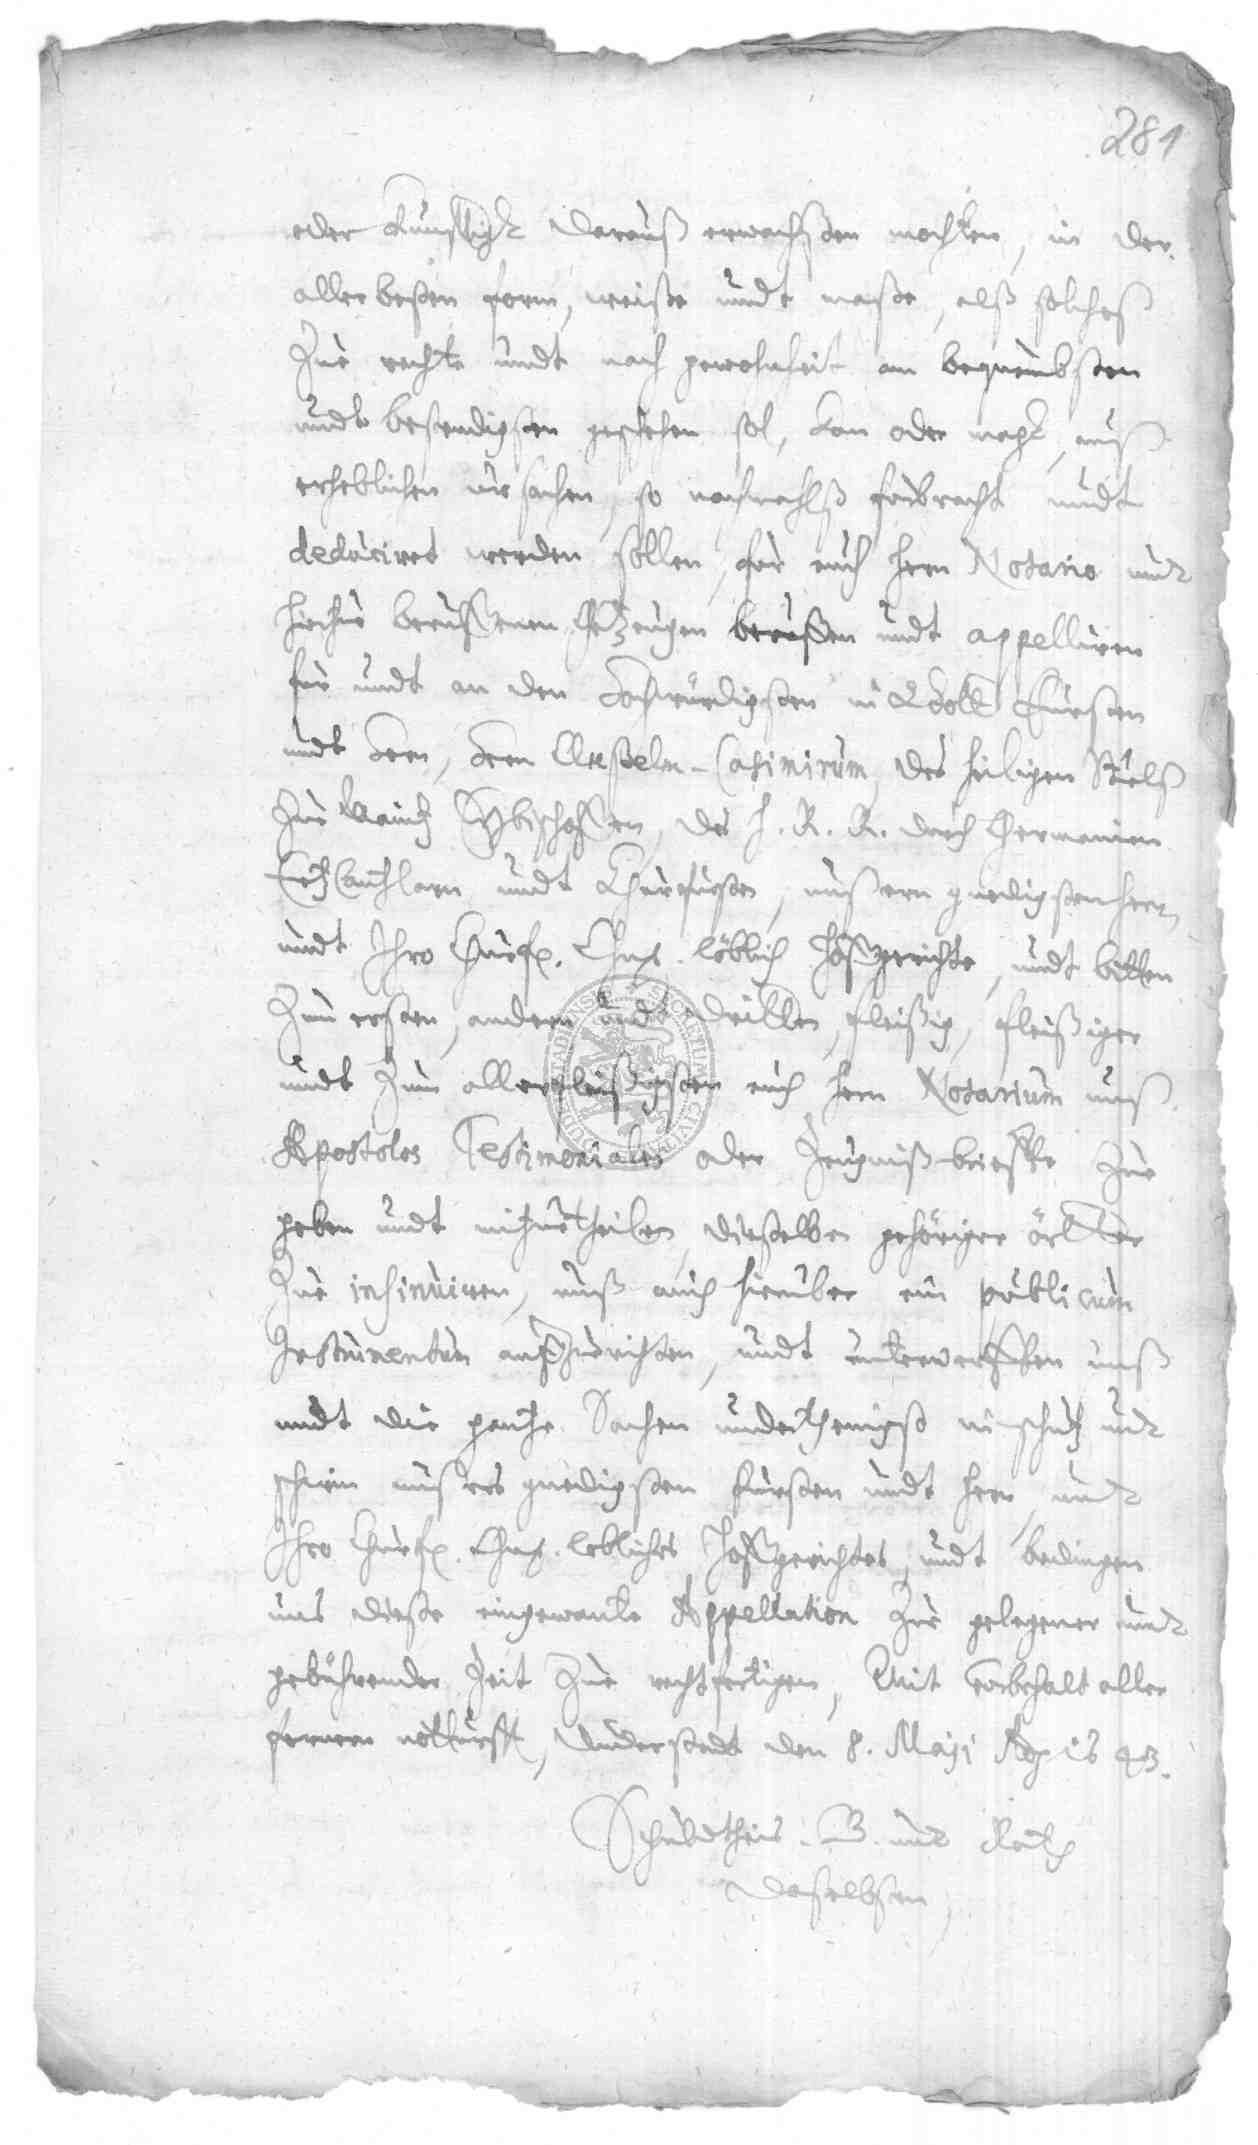 281
oder künfftigk darauß erwachßen mochten, in der
aller besten form, weiße undt maße, alß solches
Zue rechte undt nach gewohnheit am bequembsten
undt bestendigsten geschehen sol, kan oder magk, auß
erheblichen ursachen, so nachmahlß fürbracht undt
deduciret werden sollen, für euch Herrn Notario undt
hierzue beruffenen Gezeugen beruffen undt appelliren
für undt an den Hochwürdigsten in Gott Fürsten
undt Hern, Hern Anßelm-Casimirum, des heiligen Stuels
Zue Maintz Ertzbischoffen, des H. R. R. durch Germanien
Ertz Cantzlern undt Churfürsten, unßern gnedigsten Herrn,
undt Ihro Churf. Gnd. löblich Hoffgerichte, undt bitten
Zum ersten, andern undt dritten, fleißig, fleißiger
undt Zum allerfleißigsten euch Hern Notarium unß
Apostolos Testimoniales oder Zeugniß-brieffe Zue
geben undt mitzuetheilen, dießelben gehöriger örtter
Zue insinuiren, unß auch hierüber ein publicum
Instrumentum auffzurichten, undt unterwerffen unß
undt die gantze Sachen underthenigst in schutz undt
schirm unßers gnedigsten Fürsten undt Hern, undt
Ihro Churf. Gnd. löbliches Hoffgerichtes, undt bedingen
uns dieße eingewante Appellation Zue gelegener undt
gebührender Zeit Zue rechtfertigen, Mit vorbehalt aller
fernern notturfft, Duderstadt den 8. Maji Aõ is 43.
Schuldtheis. B. undt Rath
daselbsten